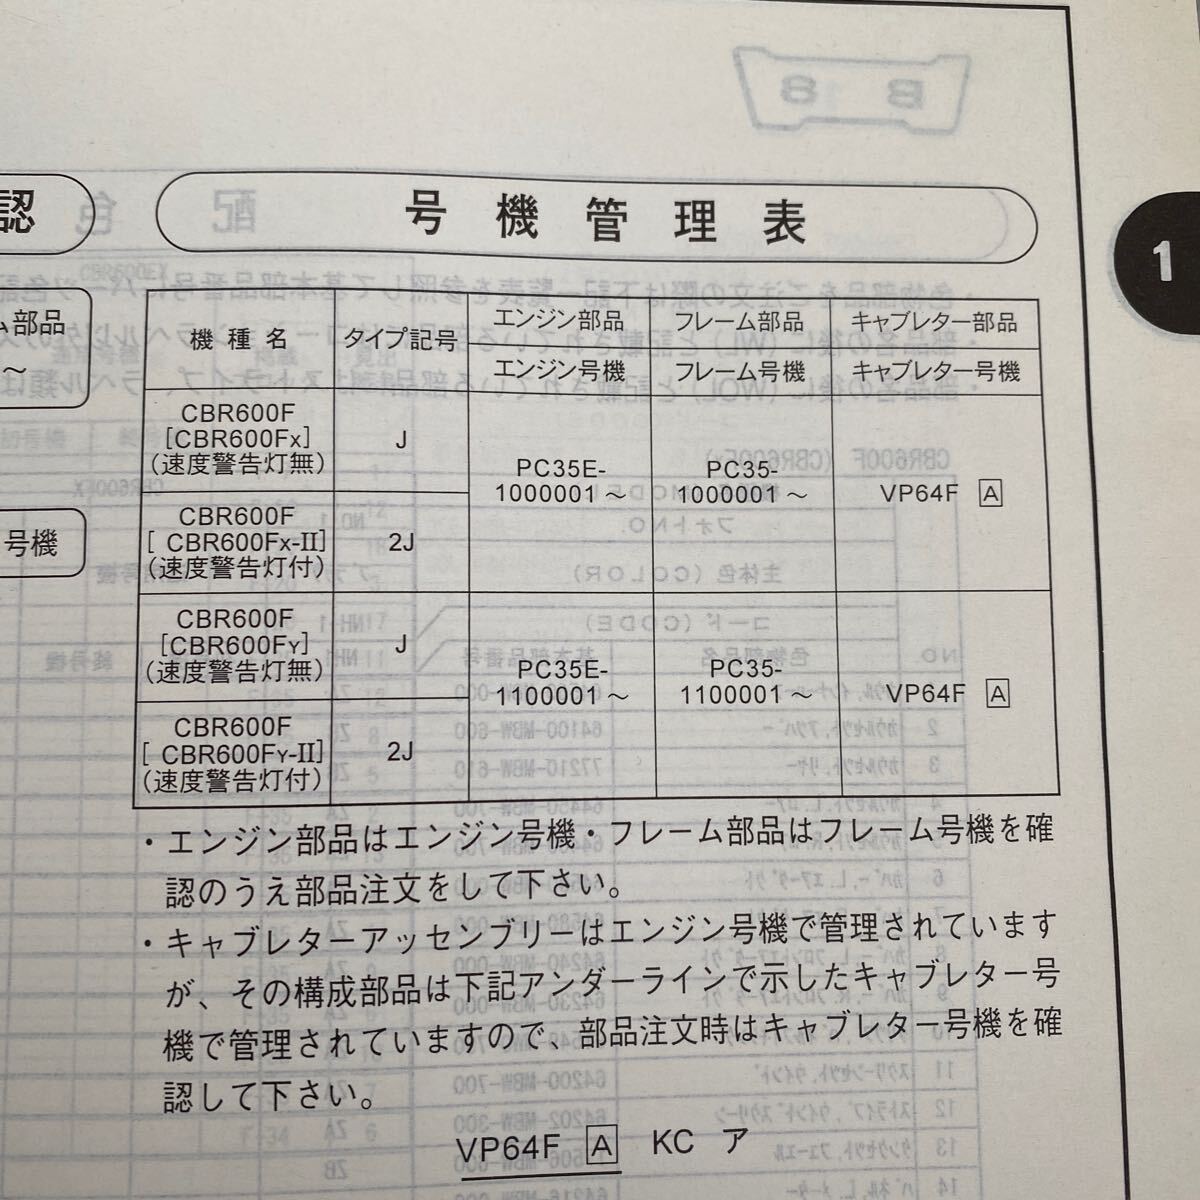 認
号機管理表
1
ム部品
～
号機
機種名
タイプ記号
エンジン部品
フレーム部品
キャブレター部品
エンジン号機
フレーム号機
キャブレター号機
CBR600F
[CBR600FX]
(速度警告灯無)
J
PC35E-
1000001～
PC35-
1000001～
VP64F A
CBR600F
[ CBR600FX-II]
(速度警告灯付)
2J
CBR600F
[CBR600FY]
(速度警告灯無)
J
PC35E-
1100001～
PC35-
1100001～
VP64F A
CBR600F
[ CBR600FY-II]
(速度警告灯付)
2J
・エンジン部品はエンジン号機・フレーム部品はフレーム号機を確
認のうえ部品注文をして下さい。
・キャブレターアッセンブリーはエンジン号機で管理されています
が、その構成部品は下記アンダーラインで示したキャブレター号
機で管理されていますので、部品注文時はキャブレター号機を確
認して下さい。
VP64F A KC ア